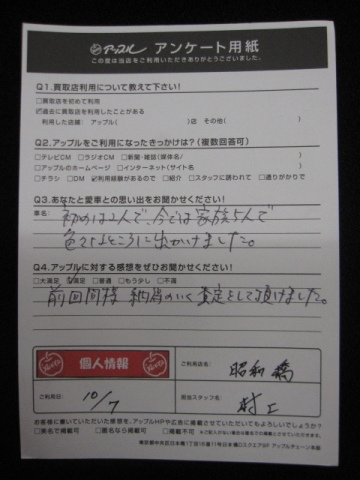 アップル アンケート用紙
この度は当店をご利用いただきありがとうございました。
Q1.買取店利用について教えて下さい!
□買取店を初めて利用
☑過去に買取店を利用したことがある
利用した店舗: アップル( )店 その他( )
Q2.アップルをご利用になったきっかけは?(複数回答可)
□テレビCM □ラジオCM □新聞・雑誌(媒体名/ )
□アップルのホームページ □インターネット(サイト名 )
□チラシ □DM ☑利用経験があるので □紹介 □スタッフに誘われて □通りがかりで
Q3.あなたと愛車との思い出をお聞かせください!
車名:
初めは2人で、今では家族5人で
色々なところに出かけました。
Q4.アップルに対する感想をぜひお聞かせください!
□大満足 ☑満足 □普通 □もう少し □不満
前回同様 納得のいく査定をして頂けました。
個人情報
ご利用店名:
昭和橋
ご利用日:
10/7
担当スタッフ名:
村上
お客様に書いていただいた感想を、アップルHPや広告に掲載させていただいてもよろしいでしょうか?
□実名で掲載可 □匿名なら掲載可 □掲載不可
東京都中央区日本橋1丁目16番11号日本橋ロスクエア5F アップルチェーン本部